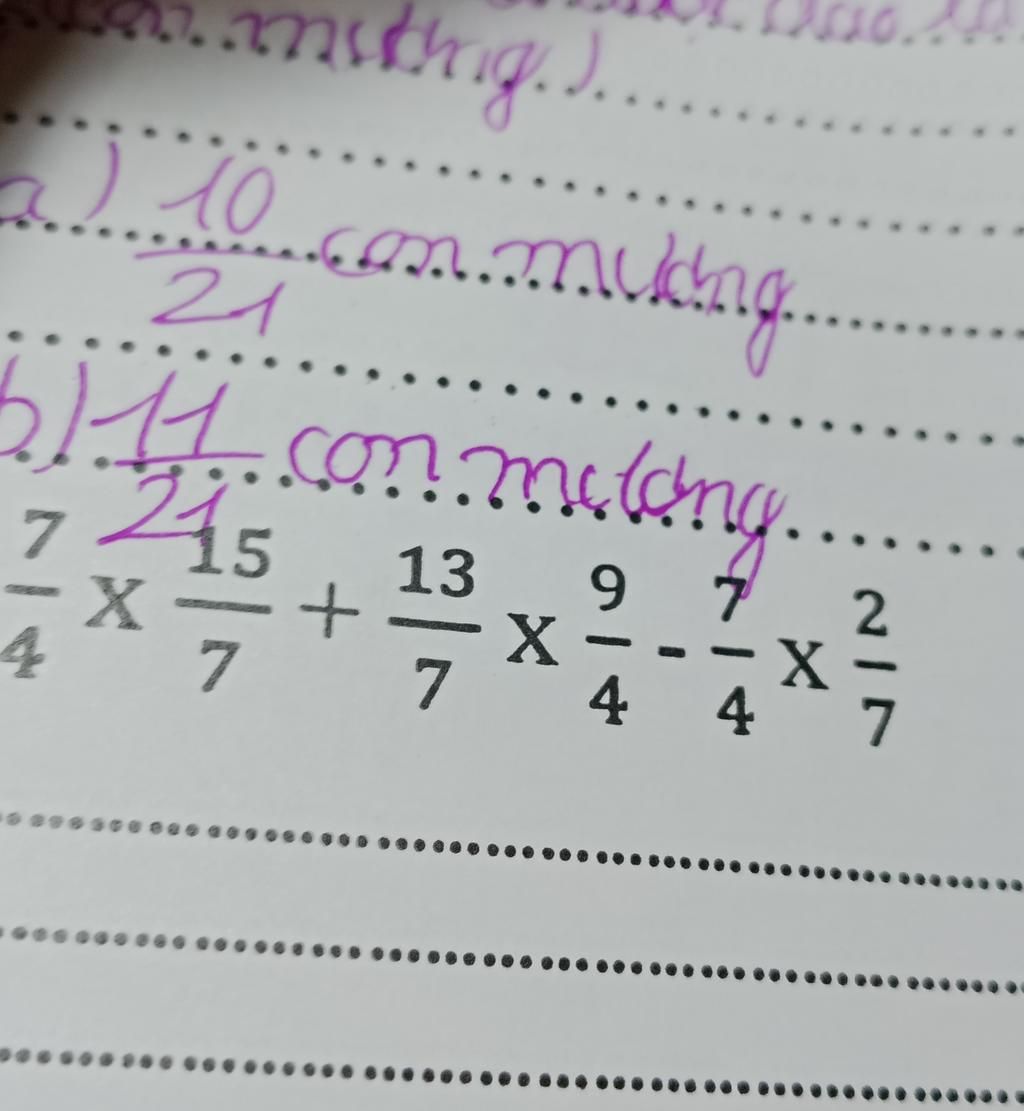 con mương)
a) 10/21 con mương
b) 11/21 con mương
7/4 X 15/7 + 13/7 X 9/4 - 7/4 X 2/7